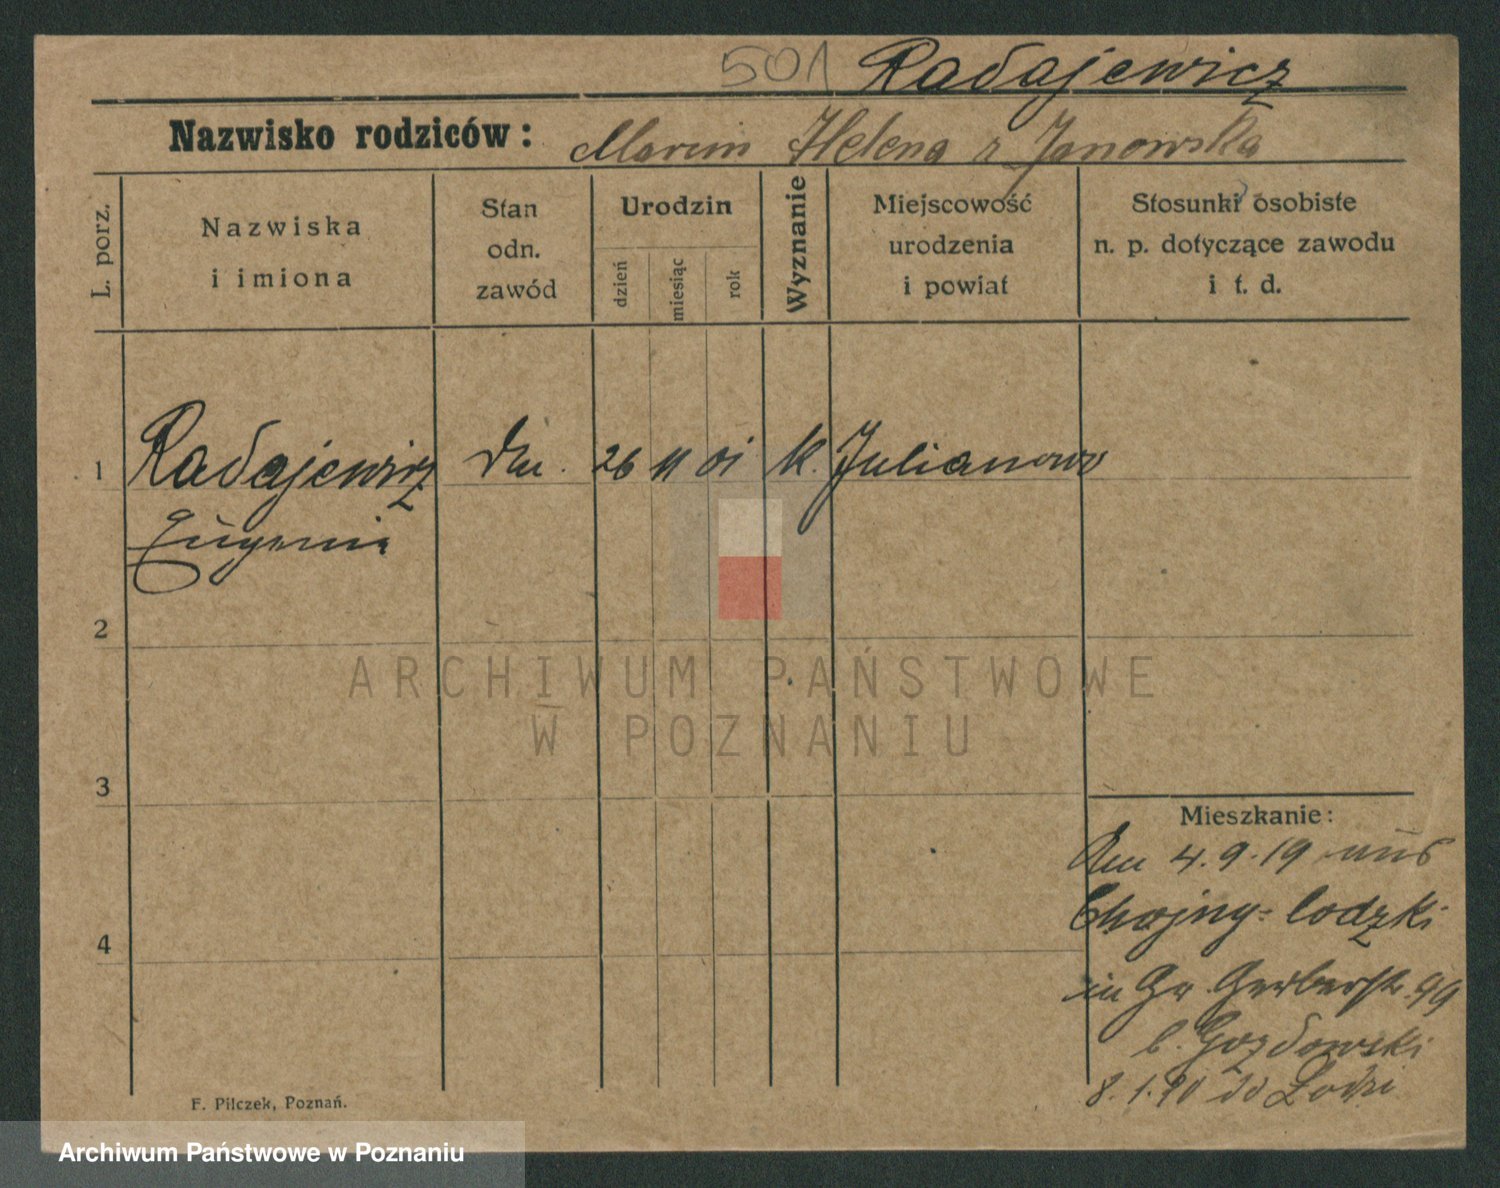 501 Radajewicz
Nazwisko rodziców: Marcin Helena z Janowska
L. porz.
Nazwiska
i imiona
Stan
odn.
zawód
Urodzin
dzień
miesiąc
rok
Wyznanie
Miejscowość
urodzenia
i powiat
Stosunki osobiste
n. p. dotyczące zawodu
i t. d.
1 Radajewicz 26 11 01 k. Julianowo
Eugenia
2
ARCHIWUM PAŃSTWOWE
W POZNANIU
3
Mieszkanie:
4.9.19 aus
Chojny-Lodzki
4
in Gr. Gerberstr. 49
b. Gozdowski
8.1.20 do Lodzi
F. Pilczek, Poznań.
Archiwum Państwowe w Poznaniu